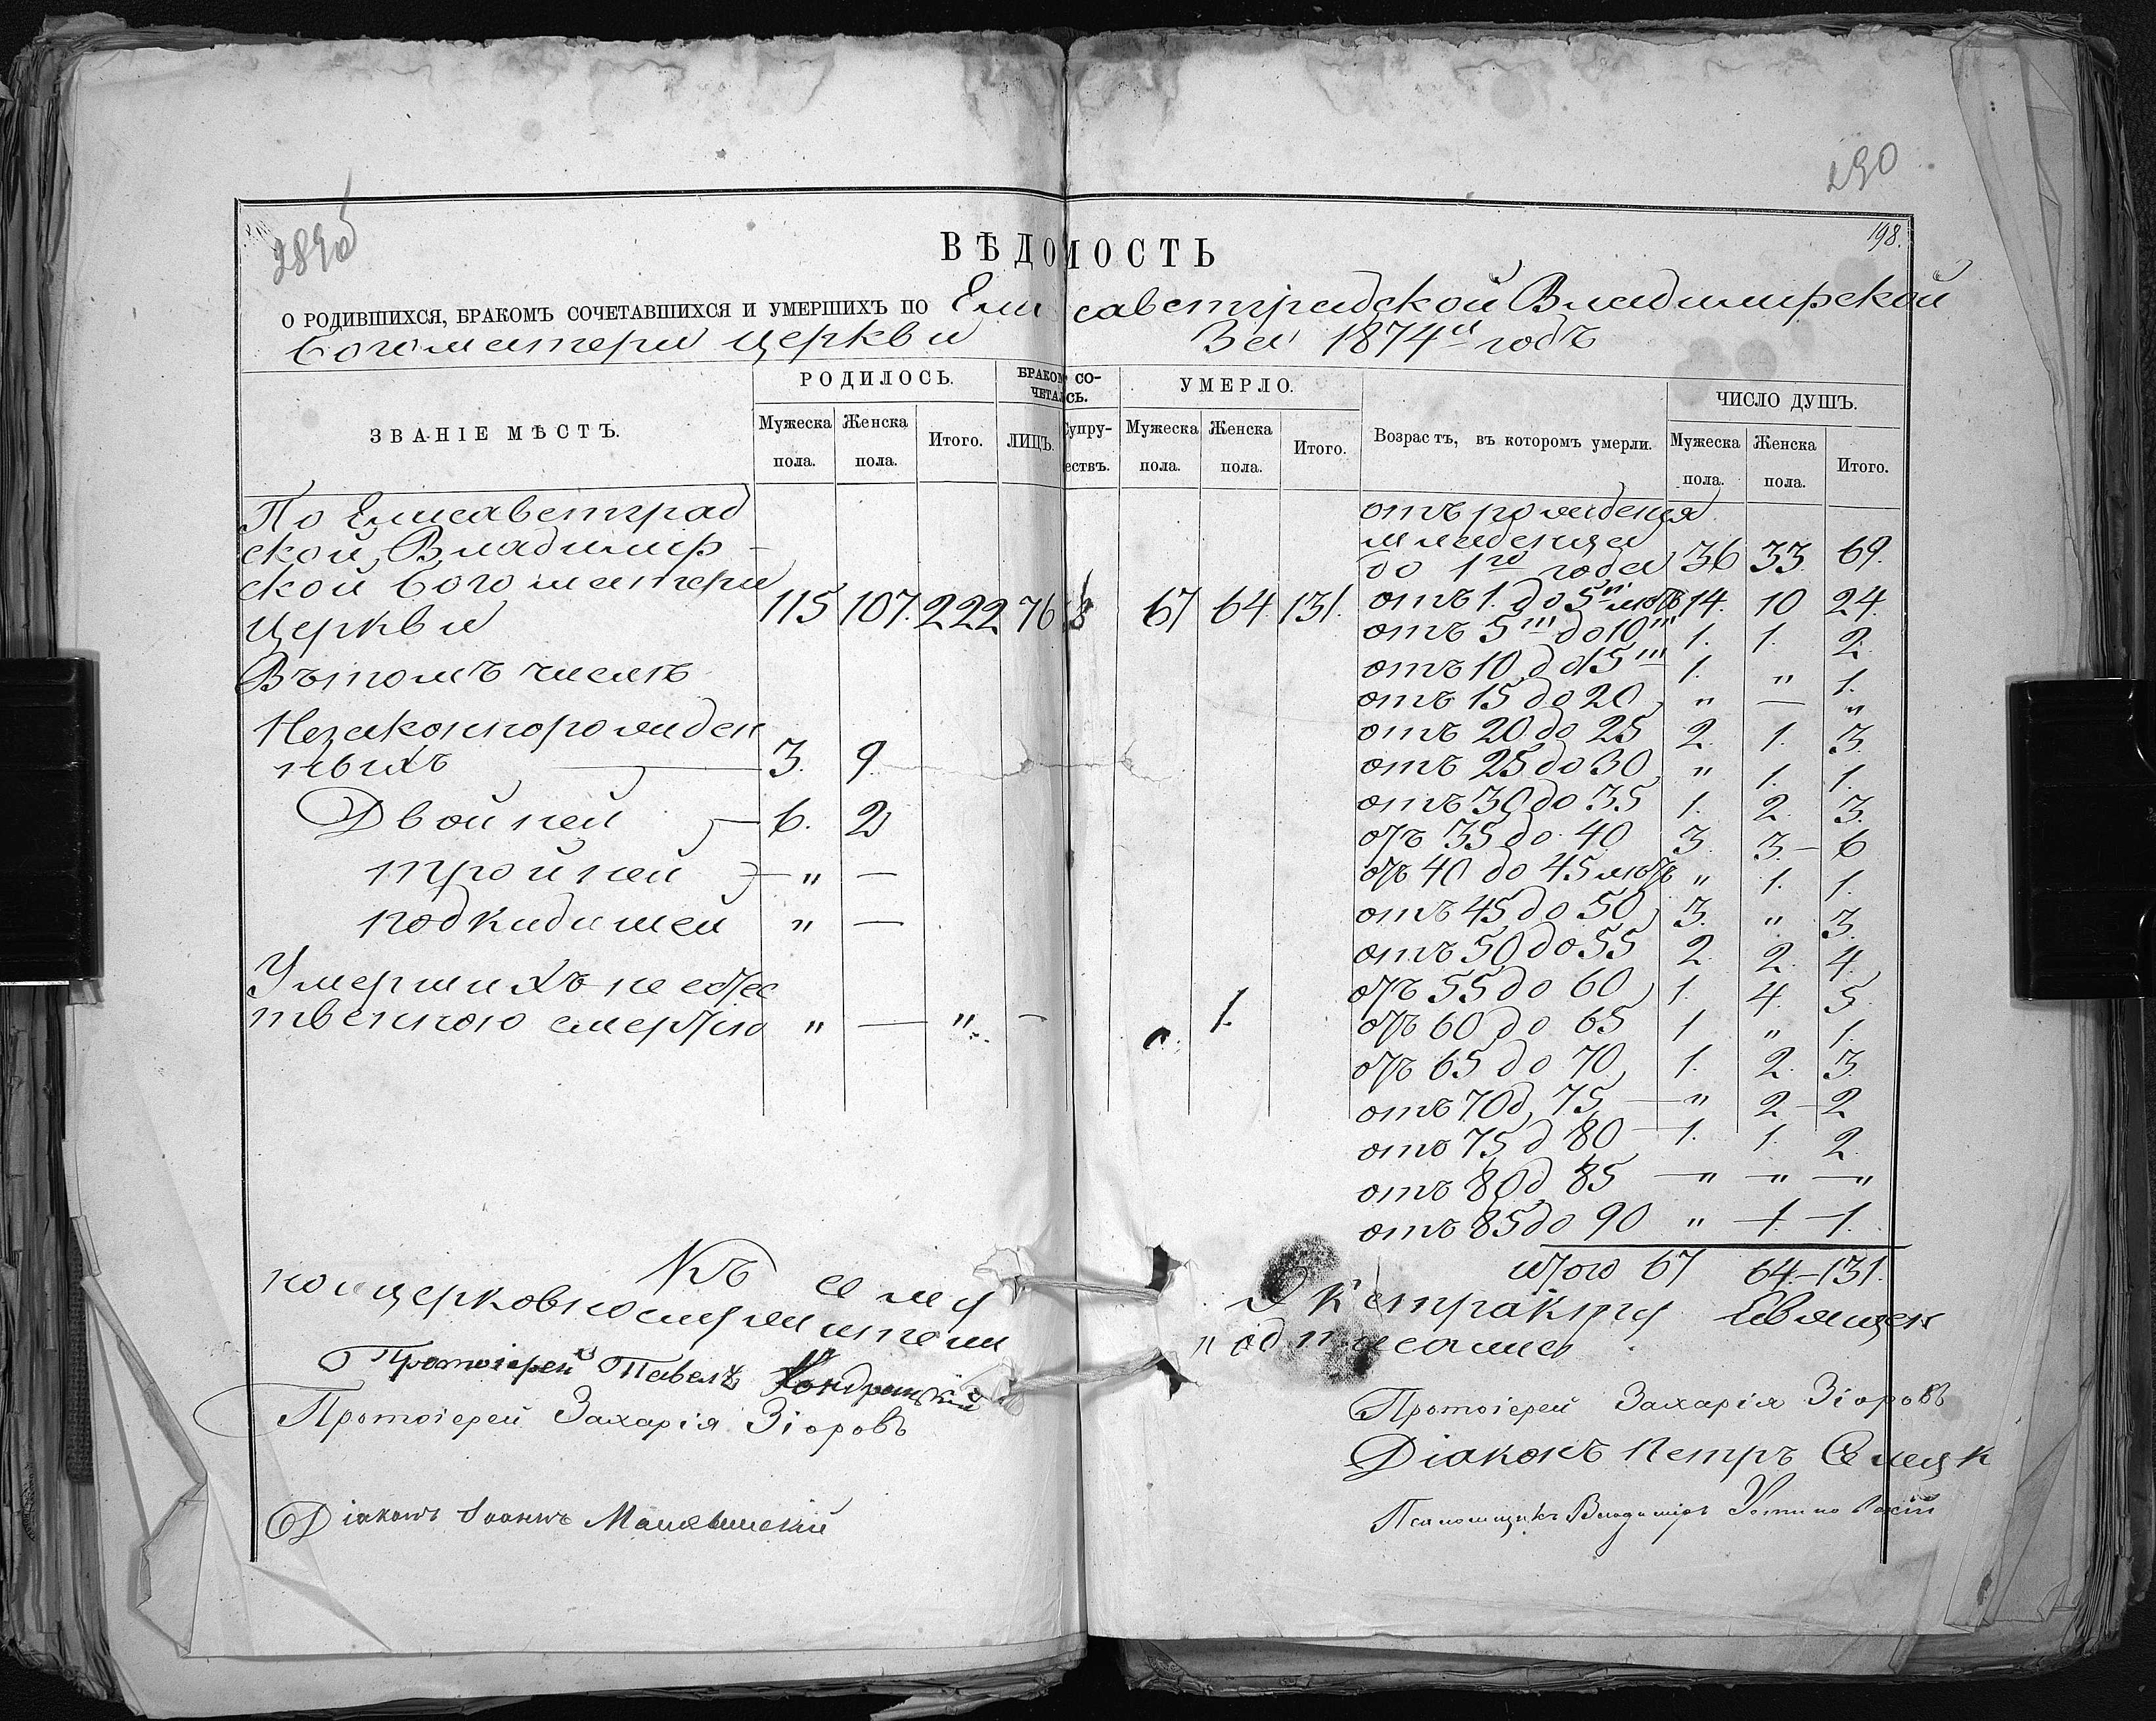 290
198.
ВѢДОМОСТЬ
О РОДИВШИХСЯ, БРАКОМЪ СОЧЕТАВШИХСЯ И УМЕРШИХЪ ПО Елисаветградской Владимирской
Богоматери церкви За 1874й годъ
ЗВАНІЕ МѢСТЪ.
РОДИЛОСЬ.
Мужеска пола.
Женска пола.
Итого.
БРАКОМЪ СО-
ЧЕТАЛОСЬ.
ЛИЦЪ.
Супру-
ествъ.
УМЕРЛО.
Мужеска пола.
Женска пола.
Итого.
Возрастъ, въ которомъ умерли.
ЧИСЛО ДУШЪ.
Мужеска пола.
Женска пола.
Итого.
По Елисаветград
ской Владимир
ской Богоматери
церкви 115 107. 222 76 67 64 131.
Въ томъ числѣ
Незаконнорожден
ныхъ 3. 9.
Двойней 6. 2
тройней " —
подкидишей " —
Умершихъ неестес
твенною смертію " — " — 1.
отъ рожденія
младенца
до 1го года 36 33 69.
отъ 1. до 5ти лѣтъ 14. 10 24
отъ 5 до 10 1. 1. 2
отъ 10 до 15 1. " 1.
отъ 15 до 20 " — "
отъ 20 до 25 2. 1. 3.
отъ 25 до 30 " 1. 1.
отъ 30 до 35 1. 2. 3.
отъ 35 до 40 3. 3. — 6
отъ 40 до 45 лѣтъ " 1. 1.
отъ 45 до 50 3. " 3.
отъ 50 до 55 2. 2. 4.
отъ 55 до 60 1. 4. 5.
отъ 60 до 65 1 " 1.
отъ 65 до 70 1. 2. 3.
отъ 70 д 75 — " 2 — 2
отъ 75 д 80 — 1. 1. 2.
отъ 80 д 85 — " — " — "
отъ 85 до 90 " — 1. — 1.
итого 67 64. — 131.
Къ сему Экстракту Священ
ноцерковнослужители подписались
Протоіерей Павелъ
Протоіерей Захарія Зіоровъ
Діаконъ Іоаннъ
Протоіерей Захарія Зіоровъ
Діаконъ Петръ
Псаломщикъ Владиміръ